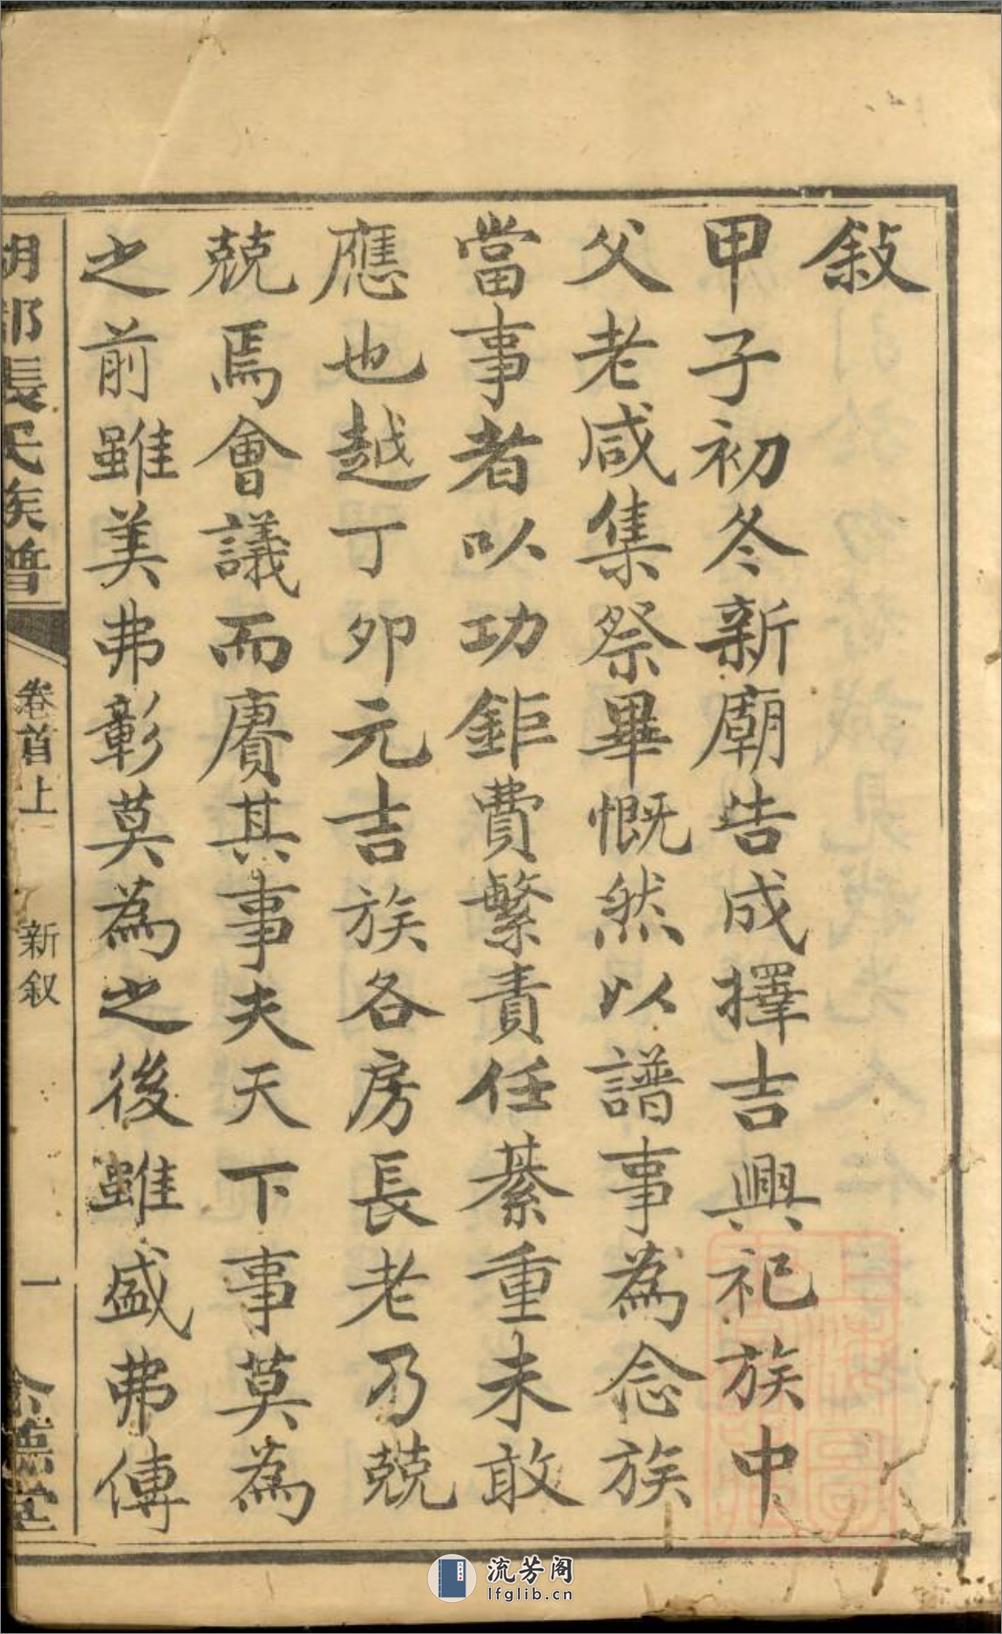 敍
甲子初冬新廟告成擇吉興祀族中
父老咸集祭畢慨然以譜事為念族
當事者以功鉅費繁責任綦重未敢
應也越丁卯元吉族各房長老乃兢
兢焉會議而賡其事夫天下事莫為
之前雖美弗彰莫為之後雖盛弗傳
張氏族譜
卷首上
新叙
一
堂
流芳阁
lfglib.cn